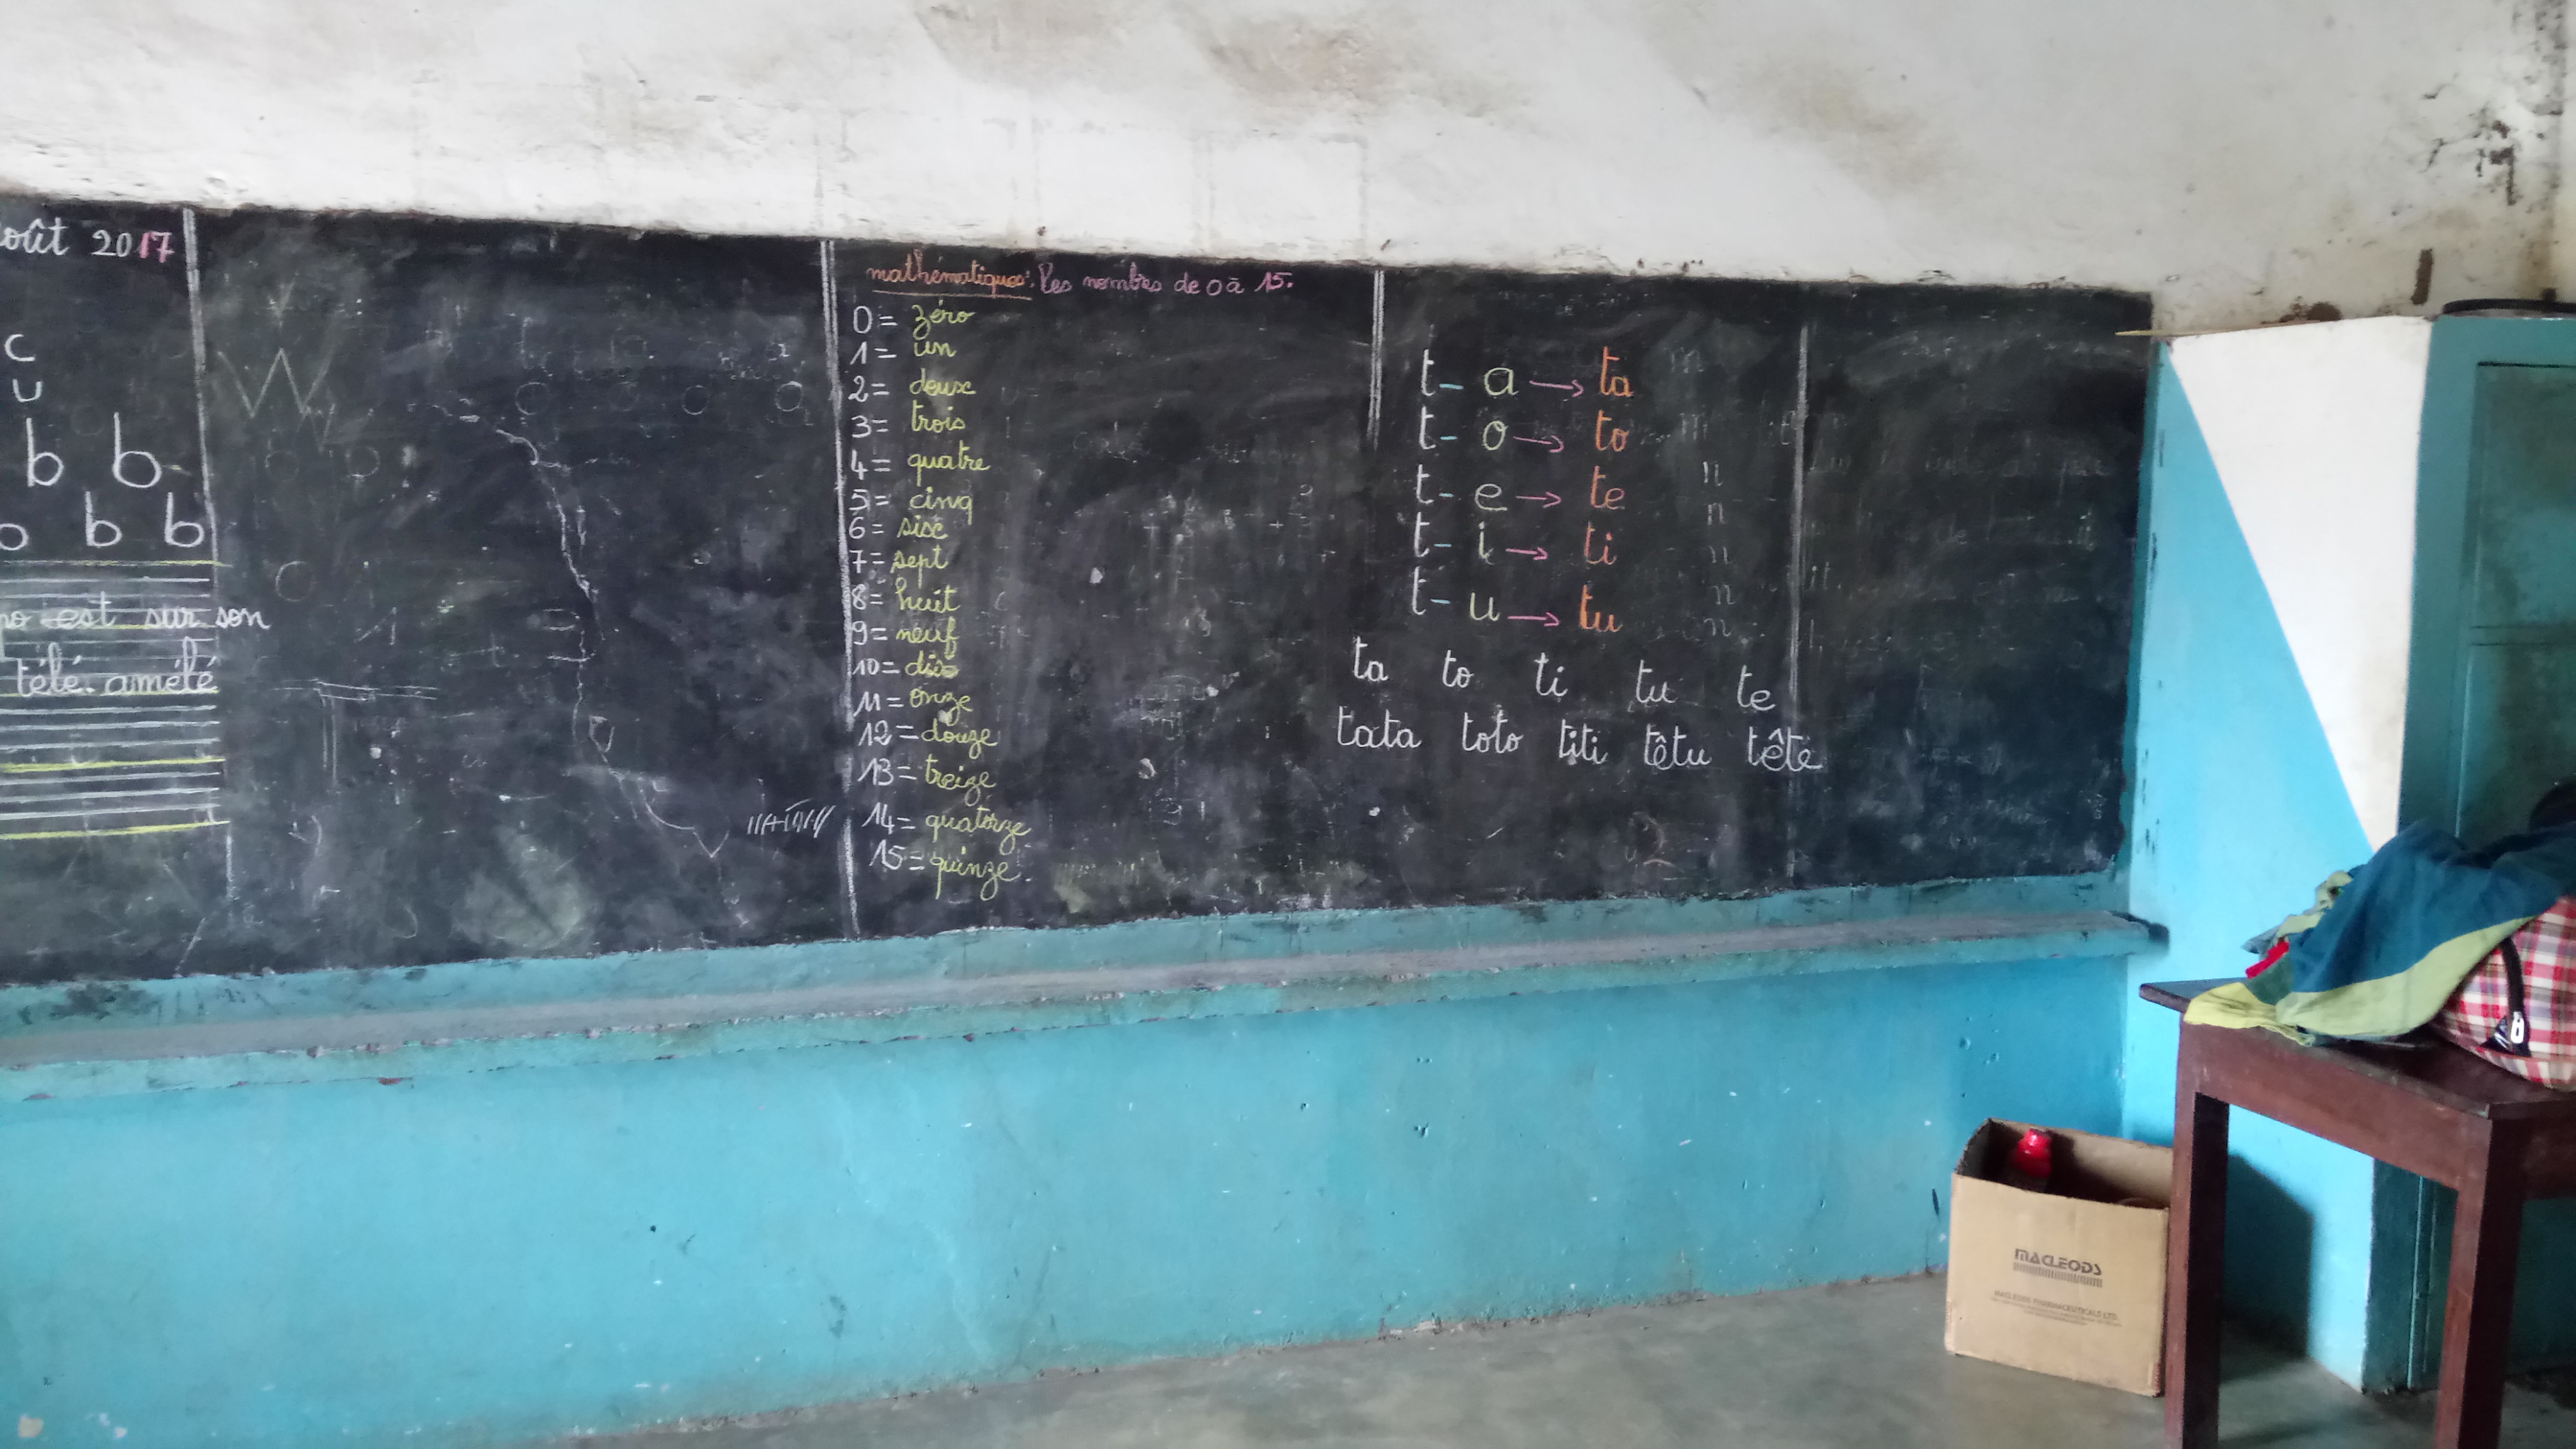 oût 2017
c
u
b b
b b
est sur son
télé. amélé
mathématiques: les nombres de 0 à 15.
0 = zéro
1 = un
2 = deux
3 = trois
4 = quatre
5 = cinq
6 = six
7 = sept
8 = huit
9 = neuf
10 = dix
11 = onze
12 = douze
13 = treize
14 = quatorze
15 = quinze.
t - a → ta
t - o → to
t - e → te
t - i → ti
t - u → tu
ta to ti tu te
tata toto titi têtu tête
MACLEODS
MACLEODS PHARMACEUTICALS LTD.